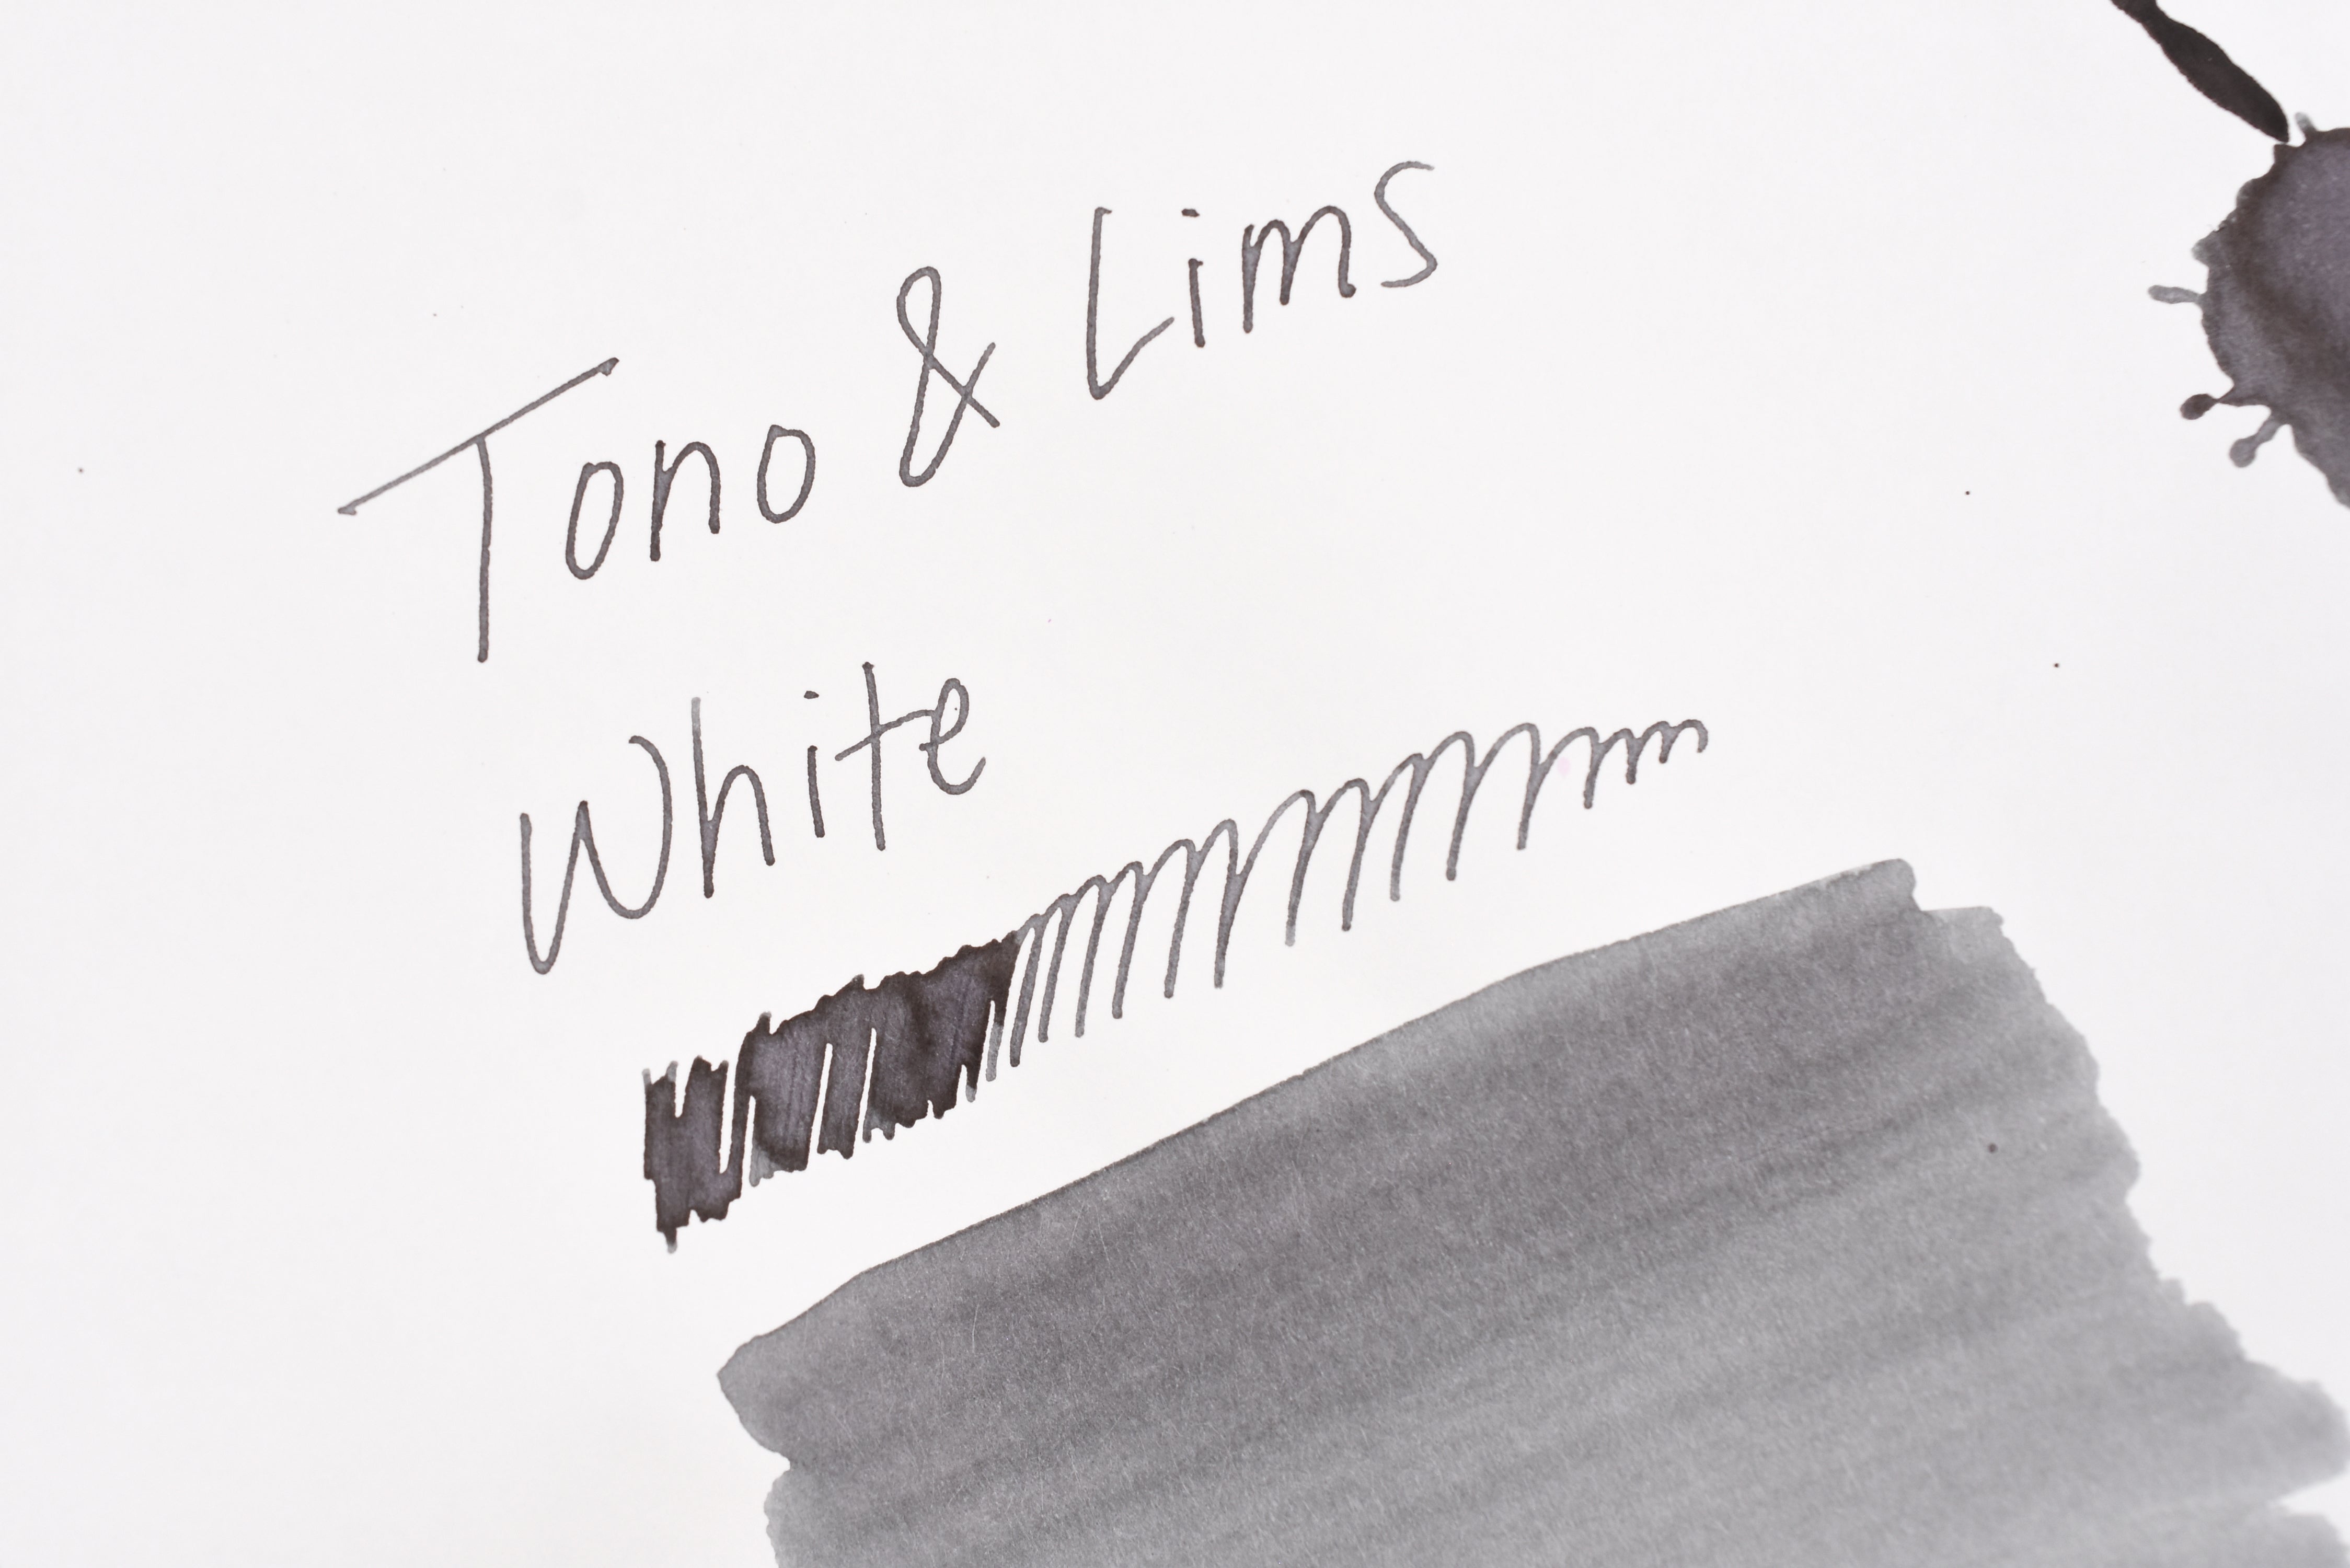 Tono & Lims
White